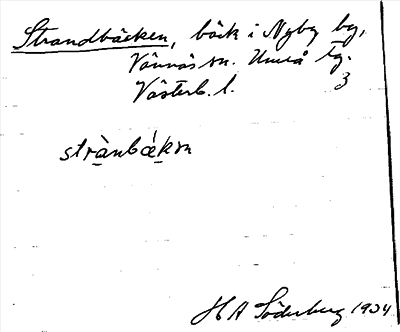 Strandbäcken, bäck i Nyby by,
Vännäs sn. Umeå tg.
Västerb. l. 3
strànbǽkɴ
H A Söderberg 1934